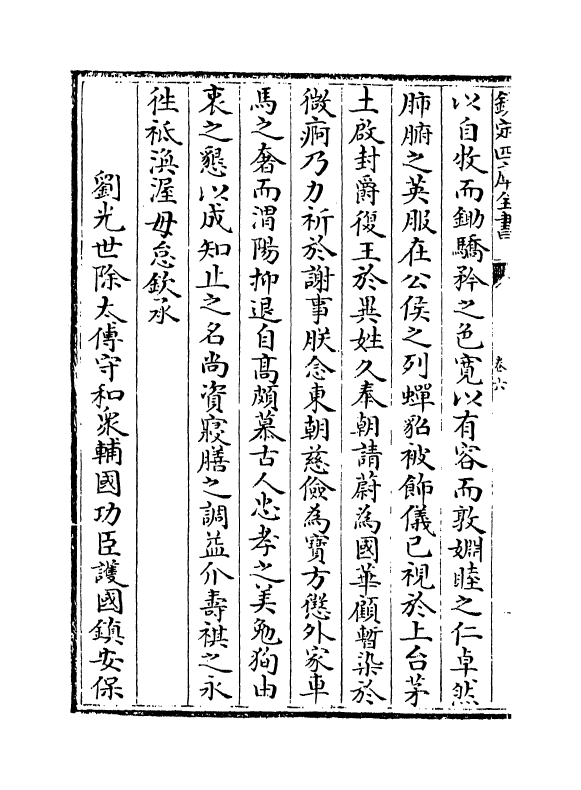 欽定四庫全書
卷六
以自收而鋤驕矜之色寛以有容而敦婣睦之仁卓然
肺腑之英服在公侯之列蟬貂被飾儀已視於上台茅
土啟封爵復王於異姓久奉朝請蔚為國華顧暫染於
微痾乃力祈於謝事朕念東朝慈儉為寶方懲外家車
馬之奢而渭陽抑退自髙頗慕古人忠孝之美勉狥由
衷之懇以成知止之名尚資寢膳之調益介壽祺之永
徃祗渙渥毋怠欽承
劉光世除太傅守和衆輔國功臣護國鎮安保